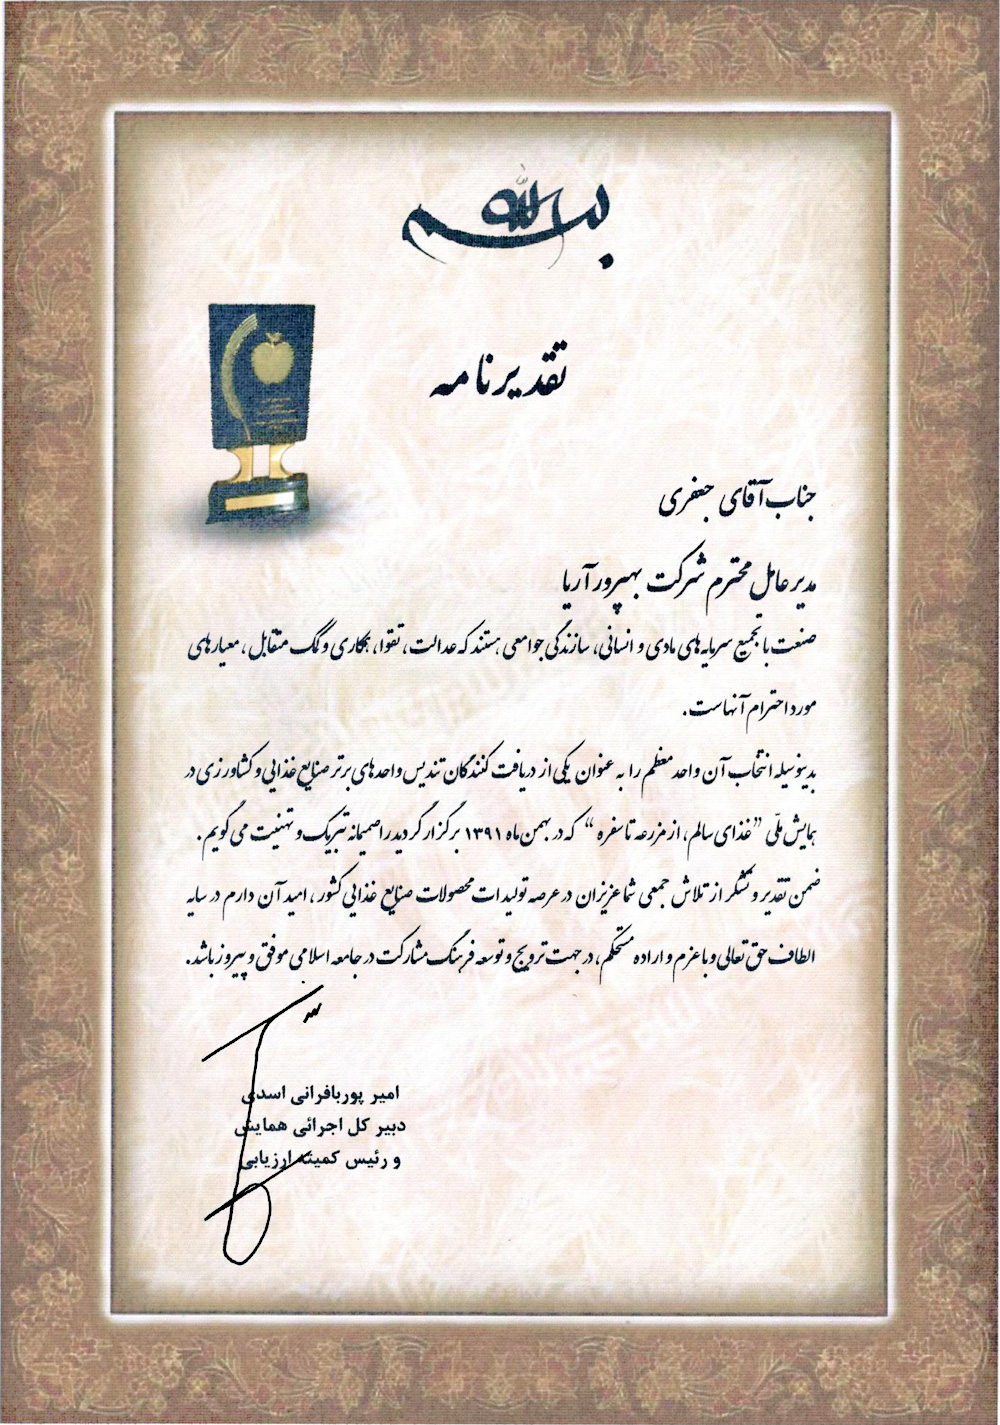 بسم الله
تقدیرنامه
جناب آقای جعفری
مدیر عامل محترم شرکت بهپرور آریا
صنعت با تجمیع سرمایه های مادی و انسانی، سازندگی جوامعی هستند که عدالت، تقوا، همکاری و کمک متقابل، معیارهای
مورد احترام آنهاست.
بدینوسیله انتخاب آن واحد معظم را به عنوان یکی از دریافت کنندگان تندیس واحدهای برتر صنایع غذایی و کشاورزی در
همایش ملّی "غذای سالم، از مزرعه تا سفره" که در بهمن ماه ۱۳۹۱ برگزار گردید را صمیمانه تبریک و تهنیت می گویم.
ضمن تقدیر و تشکر از تلاش جمعی شما عزیزان در عرصه تولیدات محصولات صنایع غذایی کشور، امید آن دارم در سایه
الطاف حق تعالی و با عزم و اراده مستحکم، در جهت ترویج و توسعه فرهنگ مشارکت در جامعه اسلامی موفق و پیروز باشد.
امیر پوربافرانی اسدی
دبیر کل اجرائی همایش
و رئیس کمیته ارزیابی